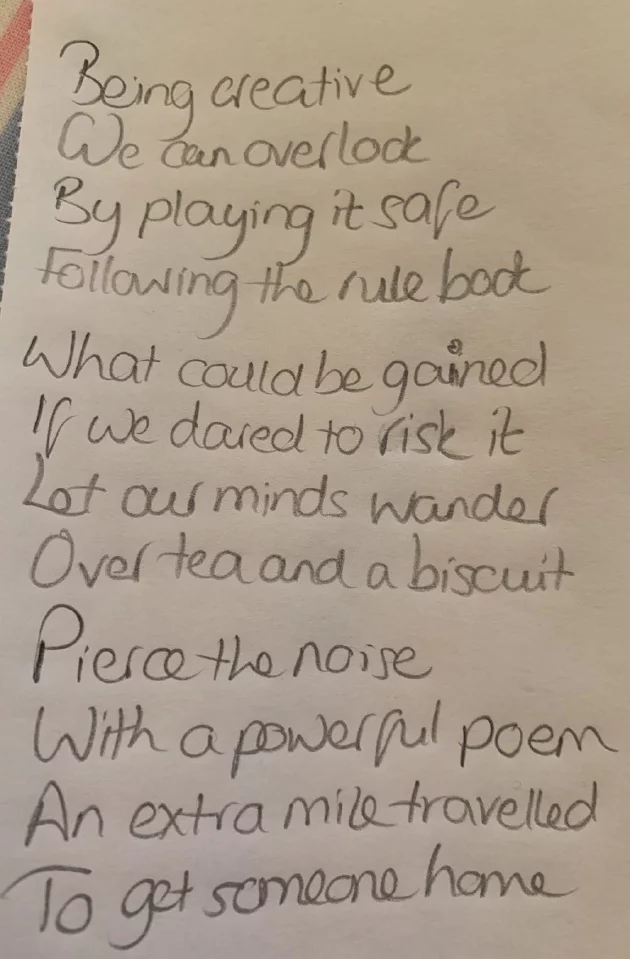 Being creative
We can overlook
By playing it safe
Following the rule book
What could be gained
If we dared to risk it
Let our minds wander
Over tea and a biscuit
Pierce the noise
With a powerful poem
An extra mile travelled
To get someone home